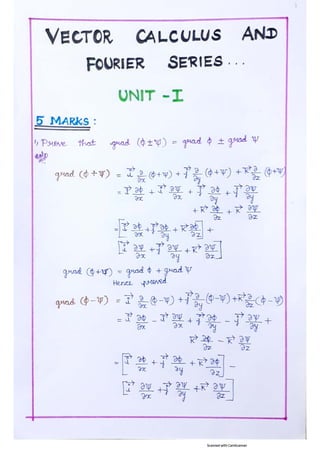 VECTOR CALCULUS AND
FOURIER SERIES...
UNIT -I
5 MARKS :
1) Prove that grad (ϕ ± ψ) = grad ϕ ± grad ψ
soln
grad (ϕ + ψ) = i⃗ ∂/∂x (ϕ + ψ) + j⃗ ∂/∂y (ϕ + ψ) + k⃗ ∂/∂z (ϕ + ψ)
= i⃗ ∂ϕ/∂x + i⃗ ∂ψ/∂x + j⃗ ∂ϕ/∂y + j⃗ ∂ψ/∂y
+ k⃗ ∂ϕ/∂z + k⃗ ∂ψ/∂z
= [i⃗ ∂ϕ/∂x + j⃗ ∂ϕ/∂y + k⃗ ∂ϕ/∂z] +
[i⃗ ∂ψ/∂x + j⃗ ∂ψ/∂y + k⃗ ∂ψ/∂z]
grad (ϕ + ψ) = grad ϕ + grad ψ
Hence proved
grad (ϕ - ψ) = i⃗ ∂/∂x (ϕ - ψ) + j⃗ ∂/∂y (ϕ - ψ) + k⃗ ∂/∂z (ϕ - ψ)
= i⃗ ∂ϕ/∂x - i⃗ ∂ψ/∂x + j⃗ ∂ϕ/∂y - j⃗ ∂ψ/∂y +
k⃗ ∂ϕ/∂z - k⃗ ∂ψ/∂z
= [i⃗ ∂ϕ/∂x + j⃗ ∂ϕ/∂y + k⃗ ∂ϕ/∂z] -
[i⃗ ∂ψ/∂x + j⃗ ∂ψ/∂y + k⃗ ∂ψ/∂z]
Scanned with CamScanner